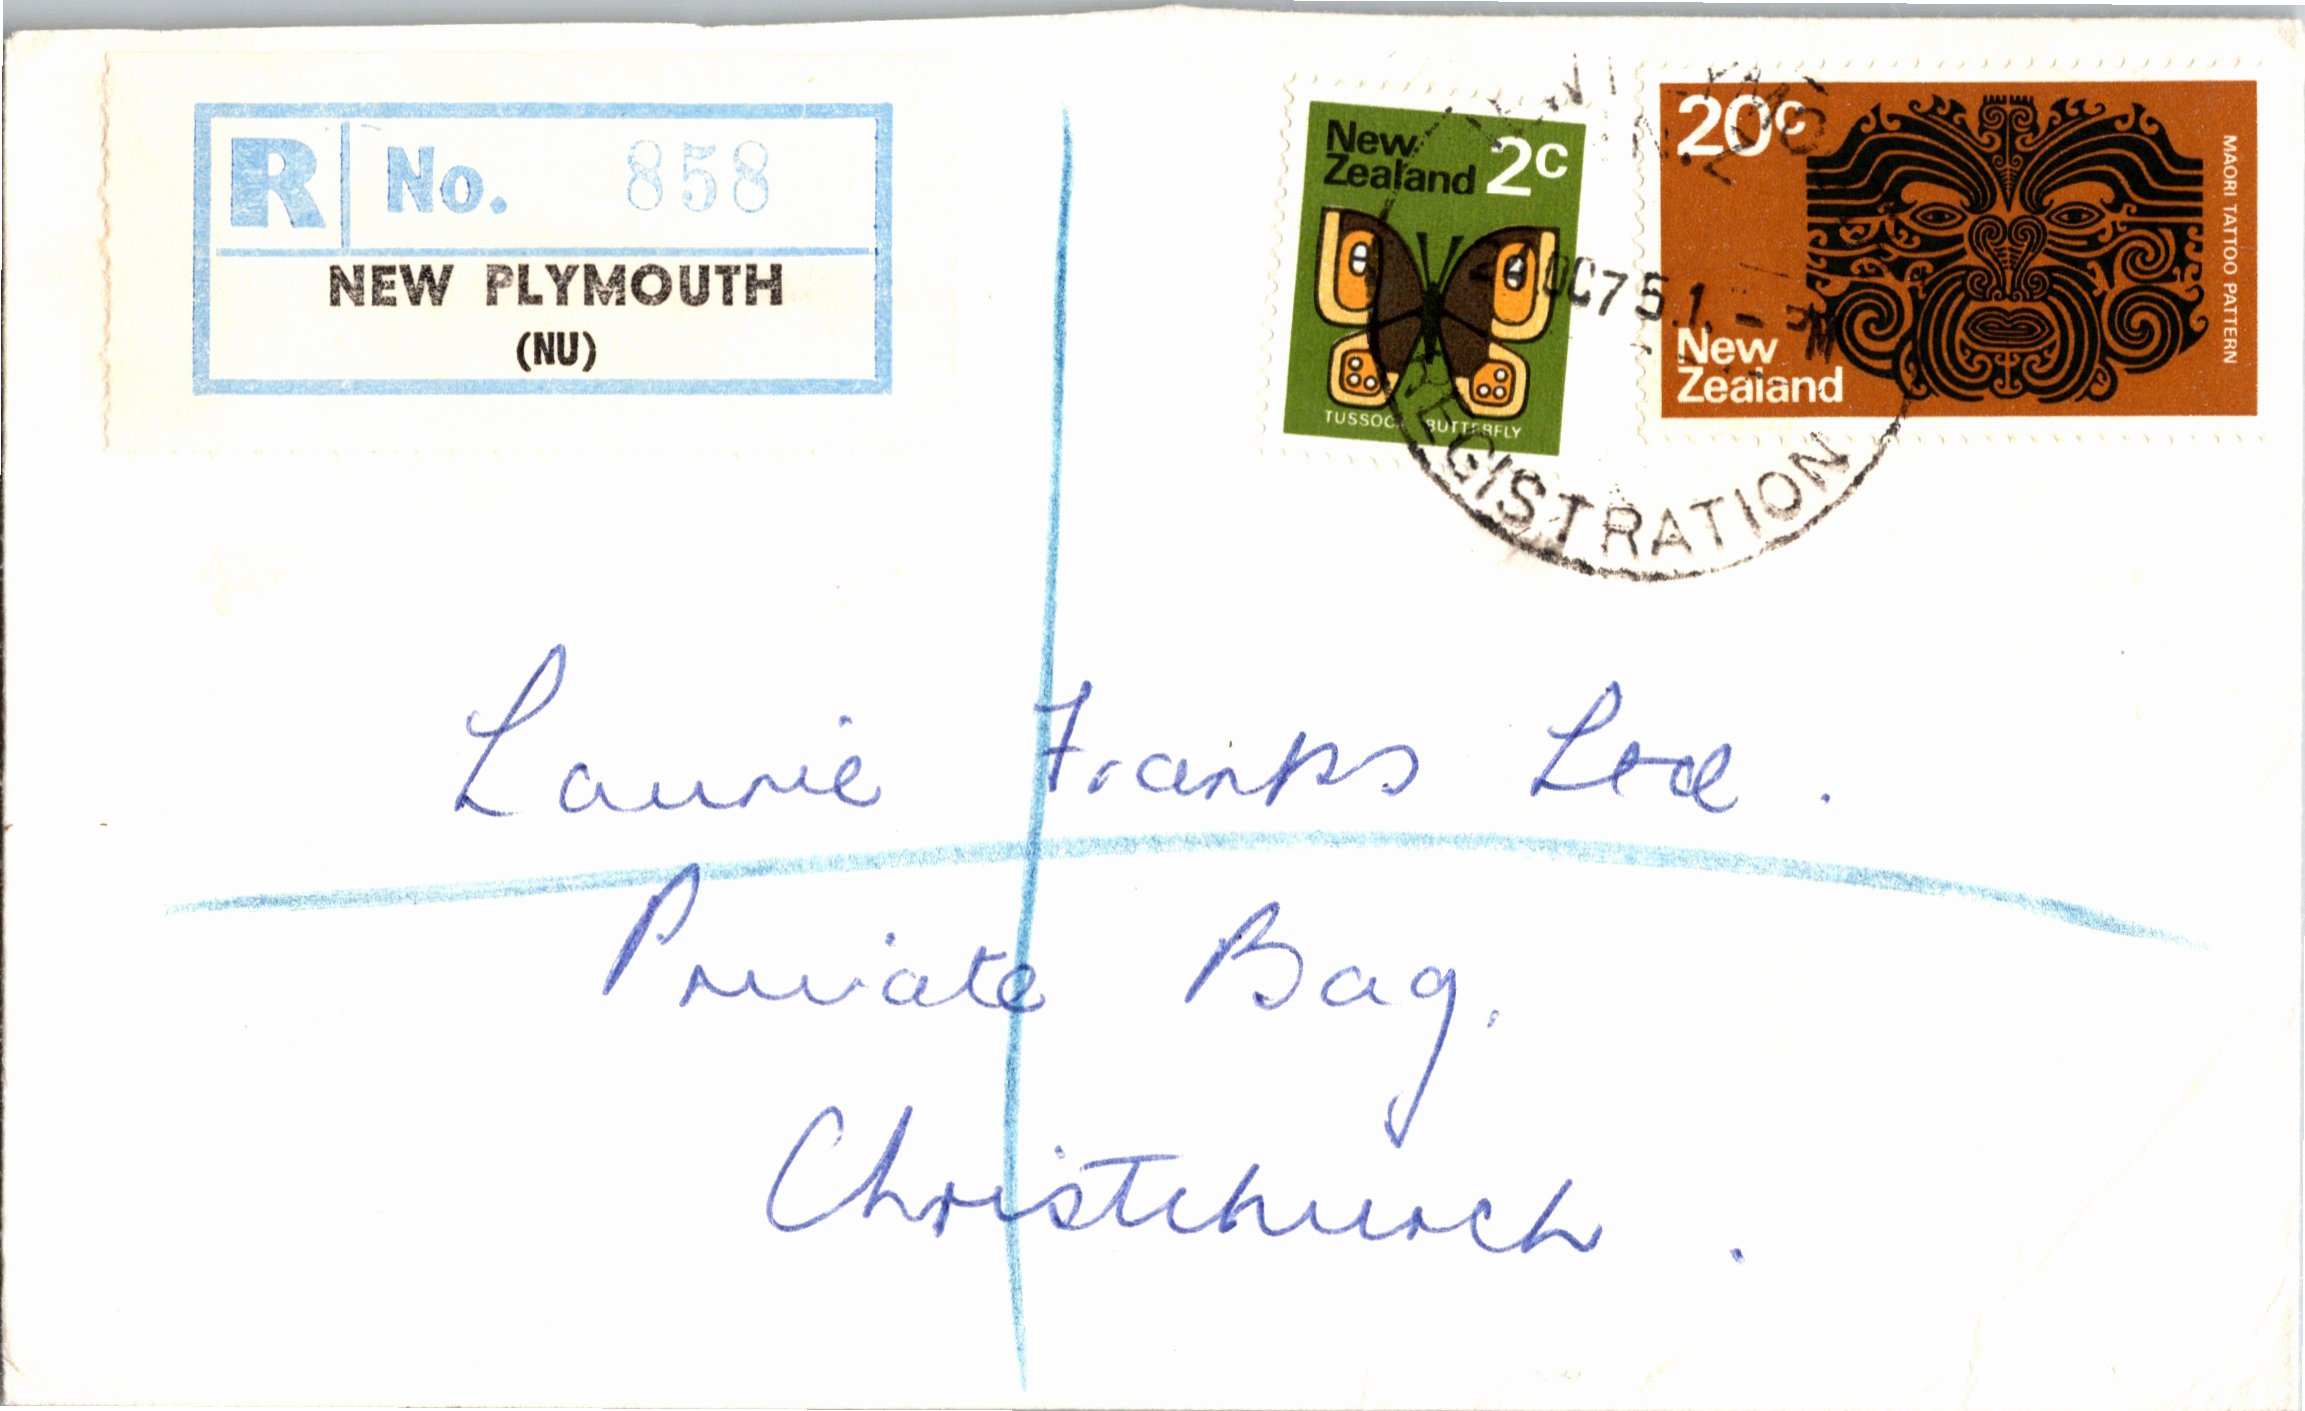 R No. 858
NEW PLYMOUTH
(NU)
New
Zealand 2c
TUSSOCK BUTTERFLY
20c
New
Zealand
MAORI TATTOO PATTERN
N.Z.
OC75 1 - PM
REGISTRATION
Laurie Franks Ltd.
Private Bag.
Christchurch.